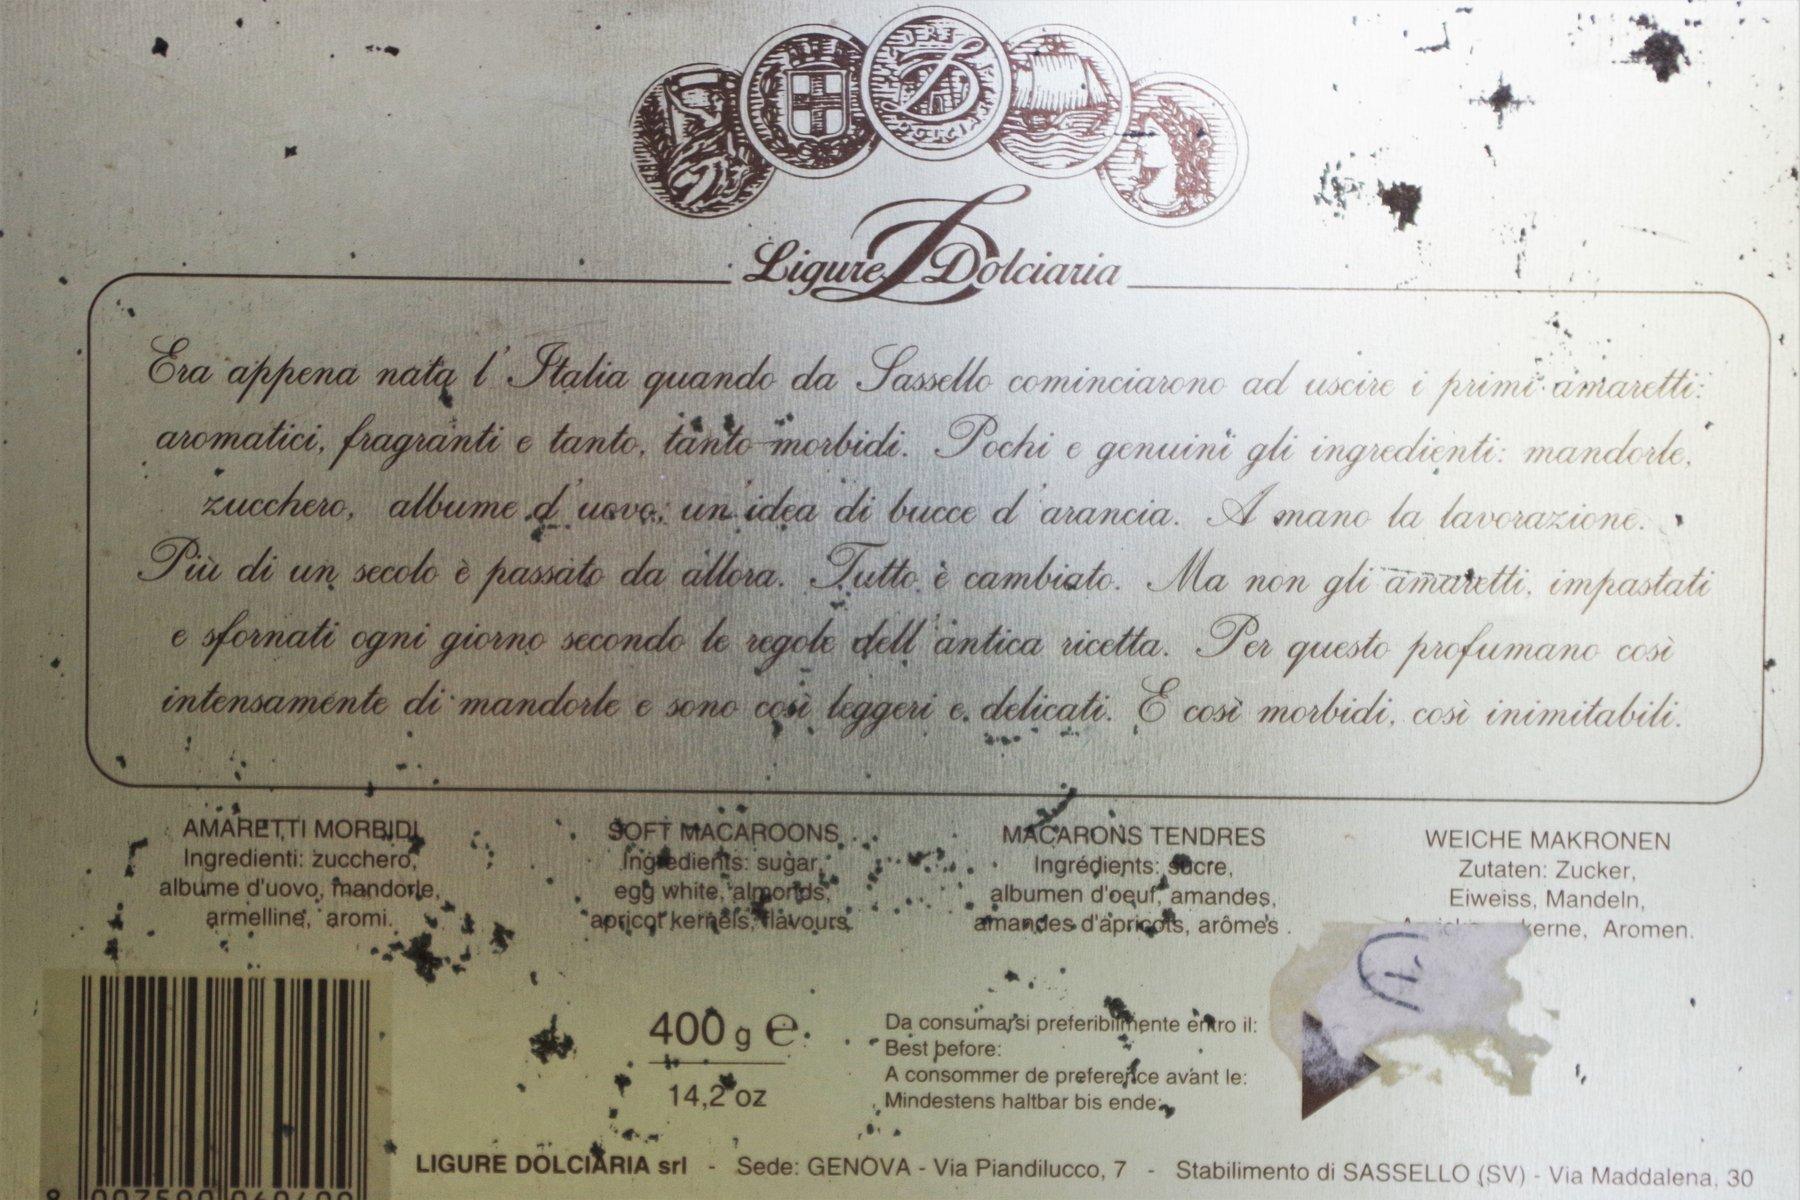 Ligure Dolciaria
Era appena nata l'Italia quando da Sassello cominciarono ad uscire i primi amaretti:
aromatici, fragranti e tanto, tanto morbidi. Pochi e genuini gli ingredienti: mandorle,
zucchero, albume d'uovo, un'idea di bucce d'arancia. A mano la lavorazione.
Più di un secolo è passato da allora. Tutto è cambiato. Ma non gli amaretti, impastati
e sfornati ogni giorno secondo le regole dell'antica ricetta. Per questo profumano così
intensamente di mandorle e sono così leggeri e delicati. E così morbidi, così inimitabili.
AMARETTI MORBIDI
Ingredienti: zucchero,
albume d'uovo, mandorle,
armelline, aromi.
SOFT MACAROONS
Ingredients: sugar,
egg white, almonds,
apricot kernels, flavours.
MACARONS TENDRES
Ingrédients: sucre,
albumen d'oeuf, amandes,
amandes d'apricots, arômes.
WEICHE MAKRONEN
Zutaten: Zucker,
Eiweiss, Mandeln,
kerne, Aromen.
400 g e
14,2 oz
Da consumarsi preferibilmente entro il:
Best before:
A consommer de preference avant le:
Mindestens haltbar bis ende:
LIGURE DOLCIARIA srl - Sede: GENOVA - Via Piandilucco, 7 - Stabilimento di SASSELLO (SV) - Via Maddalena, 30